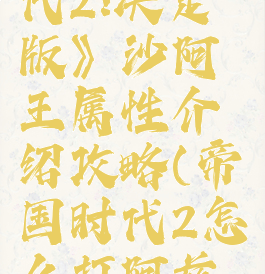 代2:决定
版》沙阿
王属性介
绍攻略(帝
国时代2怎
么打阿